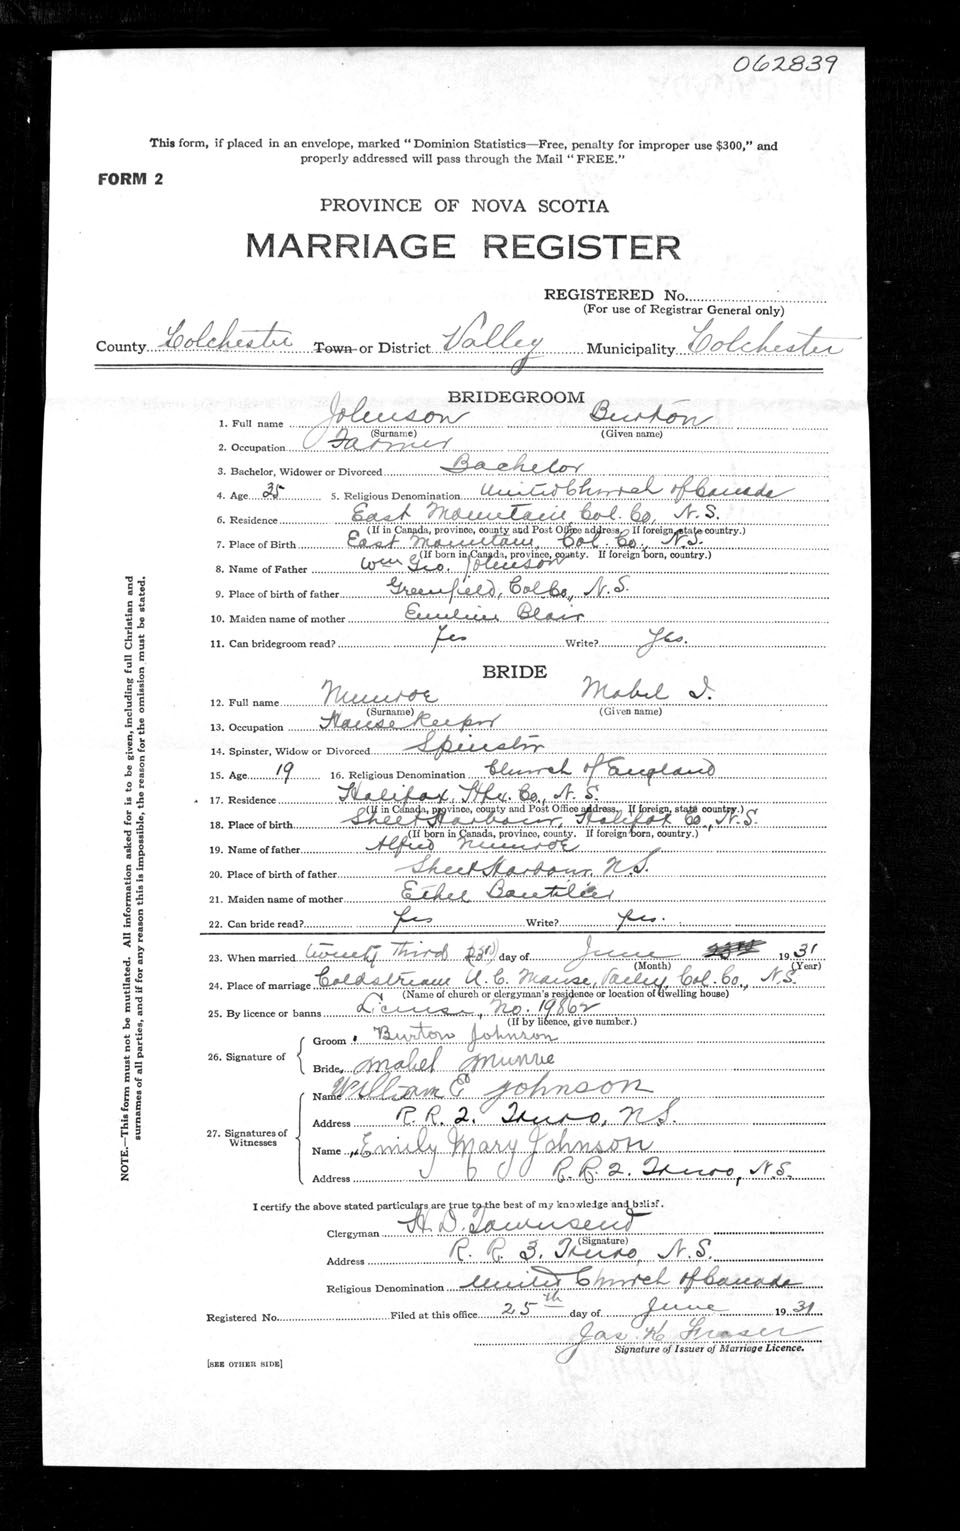 062839
This form, if placed in an envelope, marked "Dominion Statistics—Free, penalty for improper use $300," and
properly addressed will pass through the Mail "FREE."
FORM 2
PROVINCE OF NOVA SCOTIA
MARRIAGE REGISTER
REGISTERED No.
(For use of Registrar General only)
County Colchester Town or District Valley Municipality Colchester
BRIDEGROOM
1. Full name Johnson Burton
(Surname) (Given name)
2. Occupation Farmer
3. Bachelor, Widower or Divorced Bachelor
4. Age 35 5. Religious Denomination United Church of Canada
6. Residence East Mountain Col. Co, N.S.
(If in Canada, province, county and Post Office address. If foreign, state country.)
7. Place of Birth East Mountain, Col. Co., N.S.
(If born in Canada, province, county. If foreign born, country.)
8. Name of Father Wm Geo. Johnson
9. Place of birth of father Greenfield, Col. Co., N.S.
10. Maiden name of mother Emeline Blair
11. Can bridegroom read? Yes Write? Yes.
BRIDE
12. Full name Munroe Mabel I.
(Surname) (Given name)
13. Occupation House Keeper
14. Spinster, Widow or Divorced Spinster
15. Age 19 16. Religious Denomination Church of England
17. Residence Halifax, Hfx. Co., N.S.
(If in Canada, province, county and Post Office address. If foreign, state country.)
18. Place of birth Sheet Harbour, Halifax Co., N.S.
(If born in Canada, province, county. If foreign born, country.)
19. Name of father Alfred Munroe
20. Place of birth of father Sheet Harbour, N.S.
21. Maiden name of mother Ethel Boutilier
22. Can bride read? Yes Write? Yes.
23. When married twenty third (23rd) day of June 1931
(Month) (Year)
24. Place of marriage Coldstream U.C. Manse, Valley, Col. Co., N.S.
(Name of church or clergyman's residence or location of dwelling house)
25. By licence or banns License, No. 19862
(If by licence, give number.)
26. Signature of
Groom Burton Johnson
Bride Mabel Munroe
27. Signatures of Witnesses
Name William E Johnson
Address R.R. 2. Truro, N.S.
Name Emily Mary Johnson
Address R.R. 2. Truro, N.S.
I certify the above stated particulars are true to the best of my knowledge and belief.
Clergyman H. D. Townsend
(Signature)
Address R. R. 3. Truro, N.S.
Religious Denomination United Church of Canada
Registered No. Filed at this office 25th day of June 1931
Jas. K. Fraser
Signature of Issuer of Marriage Licence.
[SEE OTHER SIDE]
NOTE.—This form must not be mutilated. All information asked for is to be given, including full Christian and
surnames of all parties, and if for any reason this is impossible, the reason for the omission must be stated.